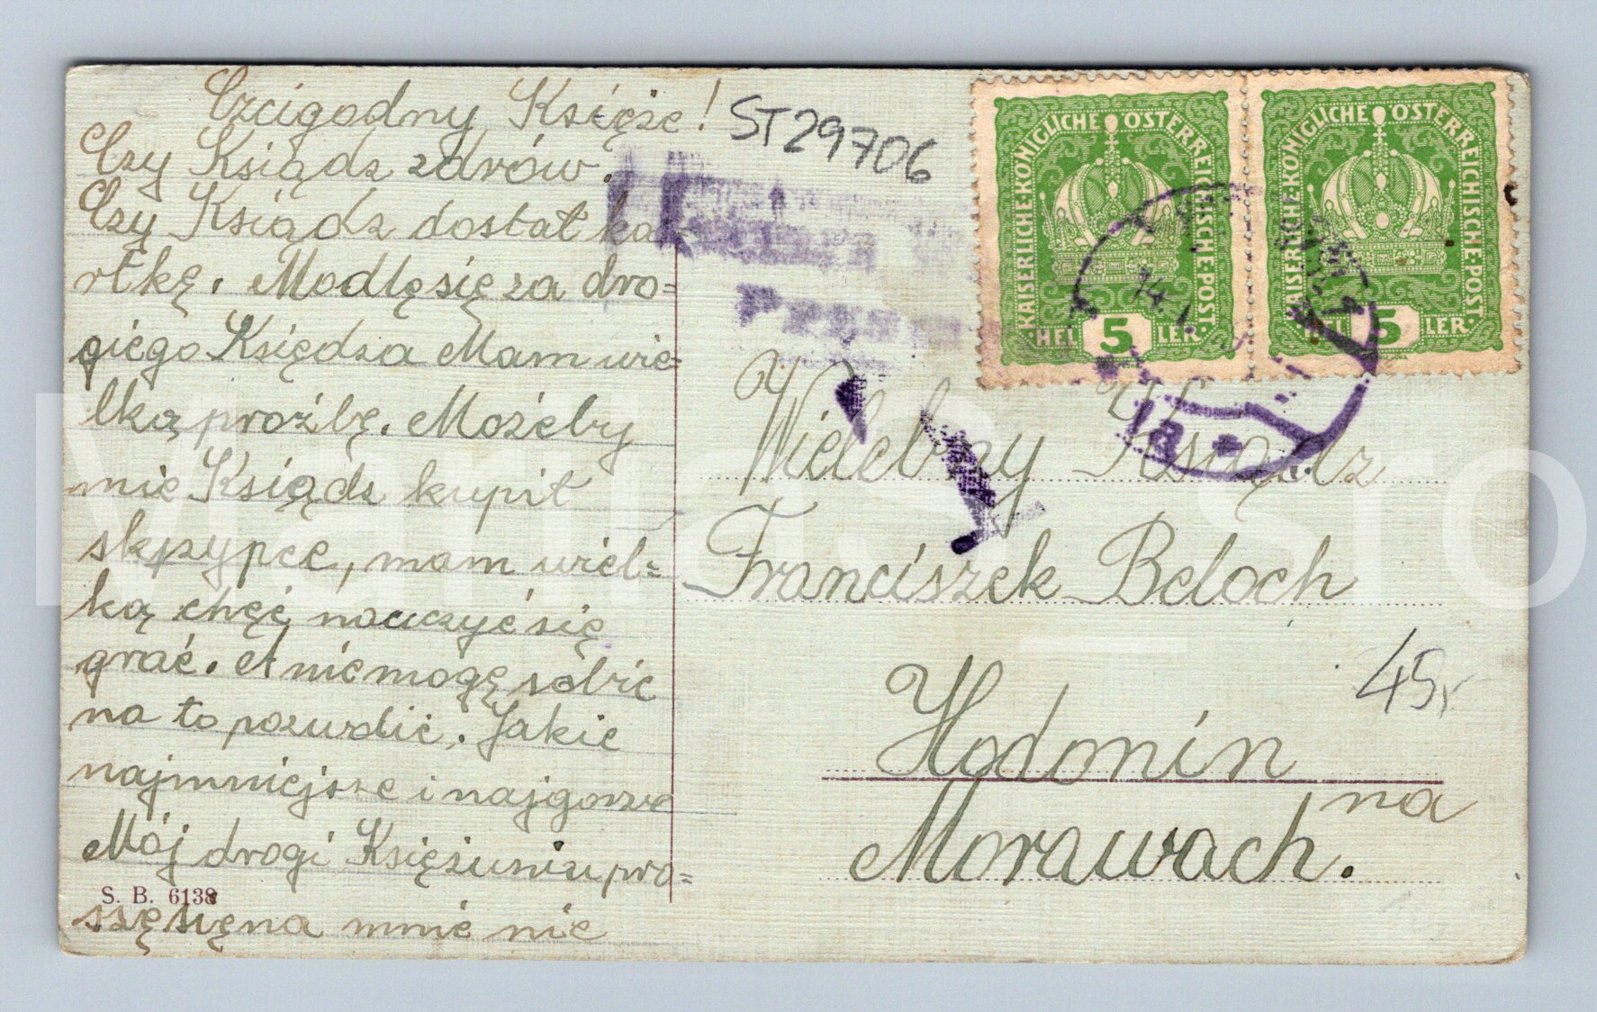 Czcigodny Księże!
Czy Ksiądz zdrów.
Czy Ksiądz dostał ka-
rtkę. Modlę się za dro=
giego Księdza Mam wie=
lką proźbę. Możeby
mie Ksiądz kupił
skrzypce, mam wiel=
ką chęć nauczyć się
grać. A nie mogę sobie
na to pozwolić. Jakie
najmniejsze i najgorsze
Mój drogi Księżuniu pro=
szę się na mnie nie
S. B. 6138
ST29706
KAISERLICHE·KÖNIGLICHE ÖSTERREICHISCHE·POST
HEL 5 LER
KAISERLICHE·KÖNIGLICHE ÖSTERREICHISCHE·POST
HEL 5 LER
14
a
Wielebny Ksiądz
Franciszek Beloch
45,-
Hodonín
na
Morawach.